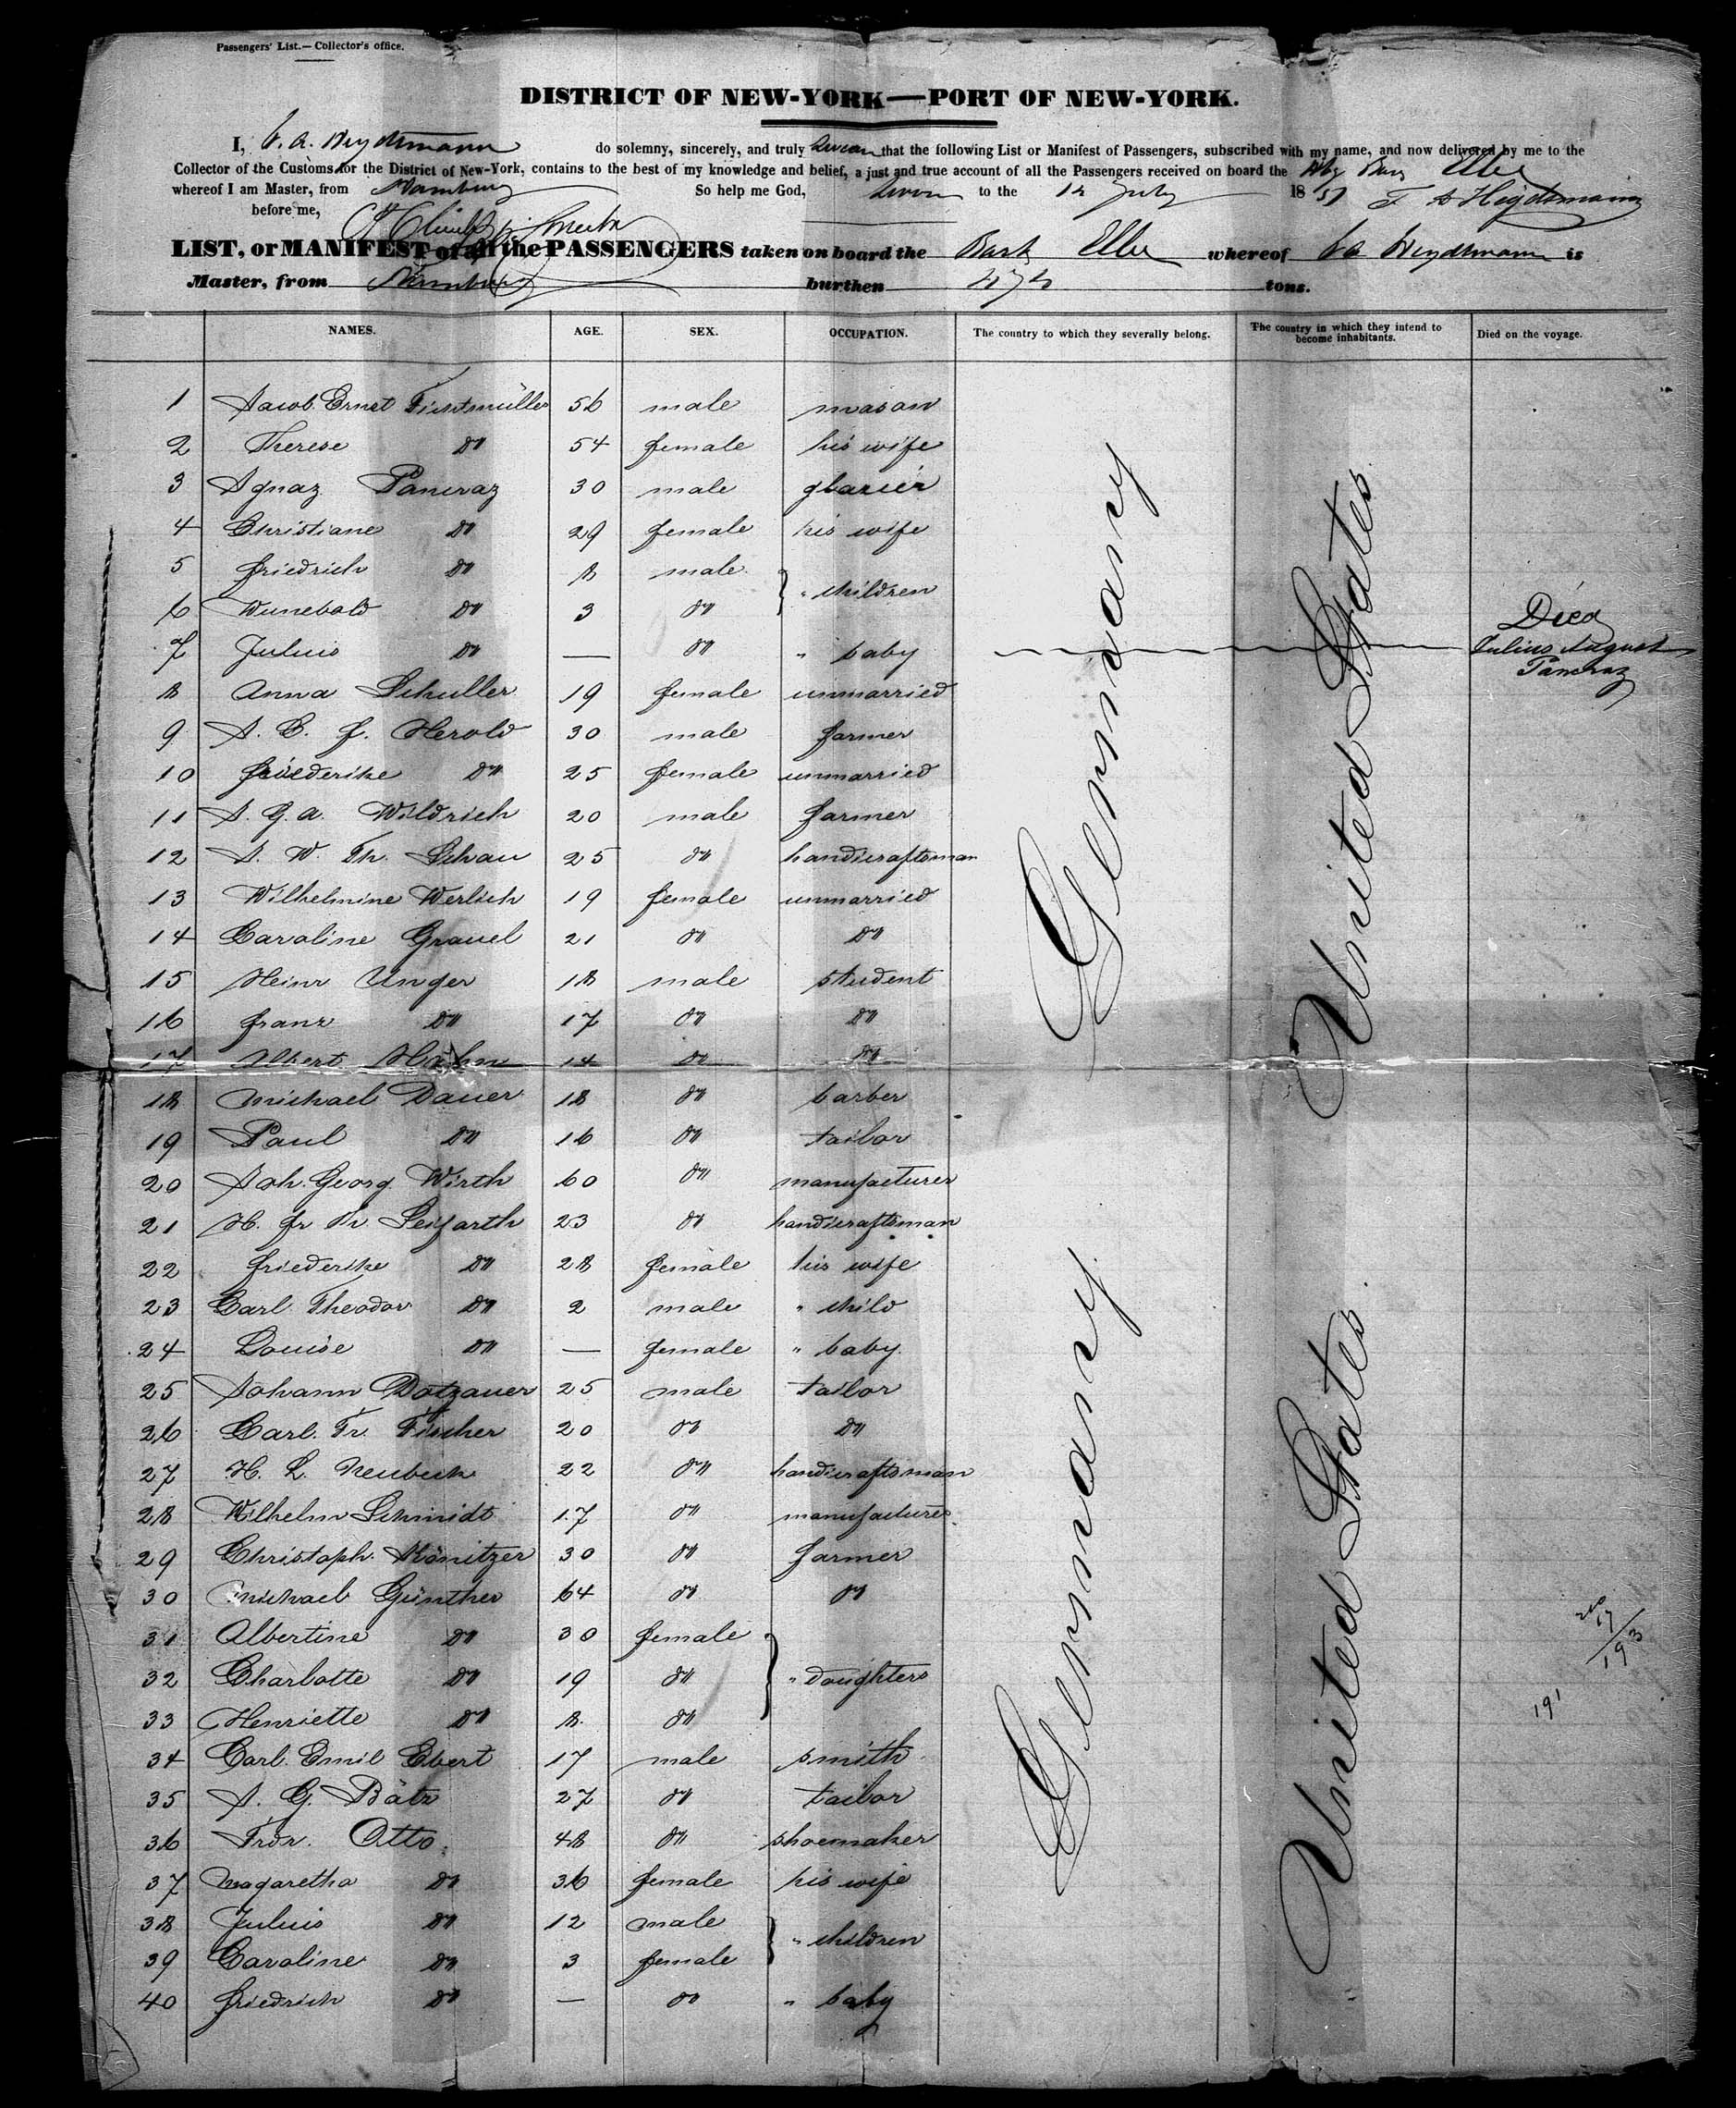 Passengers' List.—Collector's office.
DISTRICT OF NEW-YORK—PORT OF NEW-YORK.
I, do solemny, sincerely, and truly swear that the following List or Manifest of Passengers, subscribed with my name, and now delivered by me to the
Collector of the Customs for the District of New-York, contains to the best of my knowledge and belief, a just and true account of all the Passengers received on board the Bark Elbe
whereof I am Master, from Hamburg So help me God, Sworn to the 12 July 1851
before me,
LIST, or MANIFEST of all the PASSENGERS taken on board the Bark Elbe whereof is
Master, from Hamburg burthen tons.
NAMES. AGE. SEX. OCCUPATION. The country to which they severally belong. The country in which they intend to become inhabitants. Died on the voyage.
1 Jacob Ernst Fichtmüller 56 male mason
2 Therese do 54 female his wife
3 Ignaz Pancraz 30 male glazier
4 Christiane do 29 female his wife
5 Friedrich do 8 male " children
6 Wunebald do 3 do
7 Julius do — do " baby Died Julius August Pancraz
8 Anna Schuller 19 female unmarried
9 J. C. F. Herold 30 male farmer
10 Friederike do 25 female unmarried
11 J. G. A. Wildrich 20 male farmer
12 J. W. Th. Schau 25 do handicraftsman
13 Wilhelmine Werlich 19 female unmarried
14 Caroline Grauel 21 do do
15 Heinr Unger 18 male student
16 Franz do 17 do do
17 Albert Hahn 14 do do
18 Michael Dauer 18 do barber
19 Paul do 16 do tailor
20 Joh. Georg Wirth 60 do manufacturer
21 H. Fr Th. Seifarth 23 do handicraftsman
22 Friederike do 28 female his wife
23 Carl Theodor do 2 male " child
24 Louise do — female " baby
25 Johann Dotzauer 25 male tailor
26 Carl. Fr. Fischer 20 do do
27 H. L. Neubeck 22 do handicraftsman
28 Wilhelm Schmidt 17 do manufacturer
29 Christoph Könitzer 30 do farmer
30 Michael Günther 64 do do
31 Albertine do 30 female
32 Charlotte do 19 do " Daughters
33 Henriette do 8 do
34 Carl Emil Ebert 17 male smith
35 J. G. Bätz 27 do tailor
36 Frdr. Otto 48 do shoemaker
37 Magaretha do 36 female his wife
38 Julius do 12 male " children
39 Caroline do 3 female
40 Friedrich do — do " baby
Germany
Germany
United States
United States
17
193
191